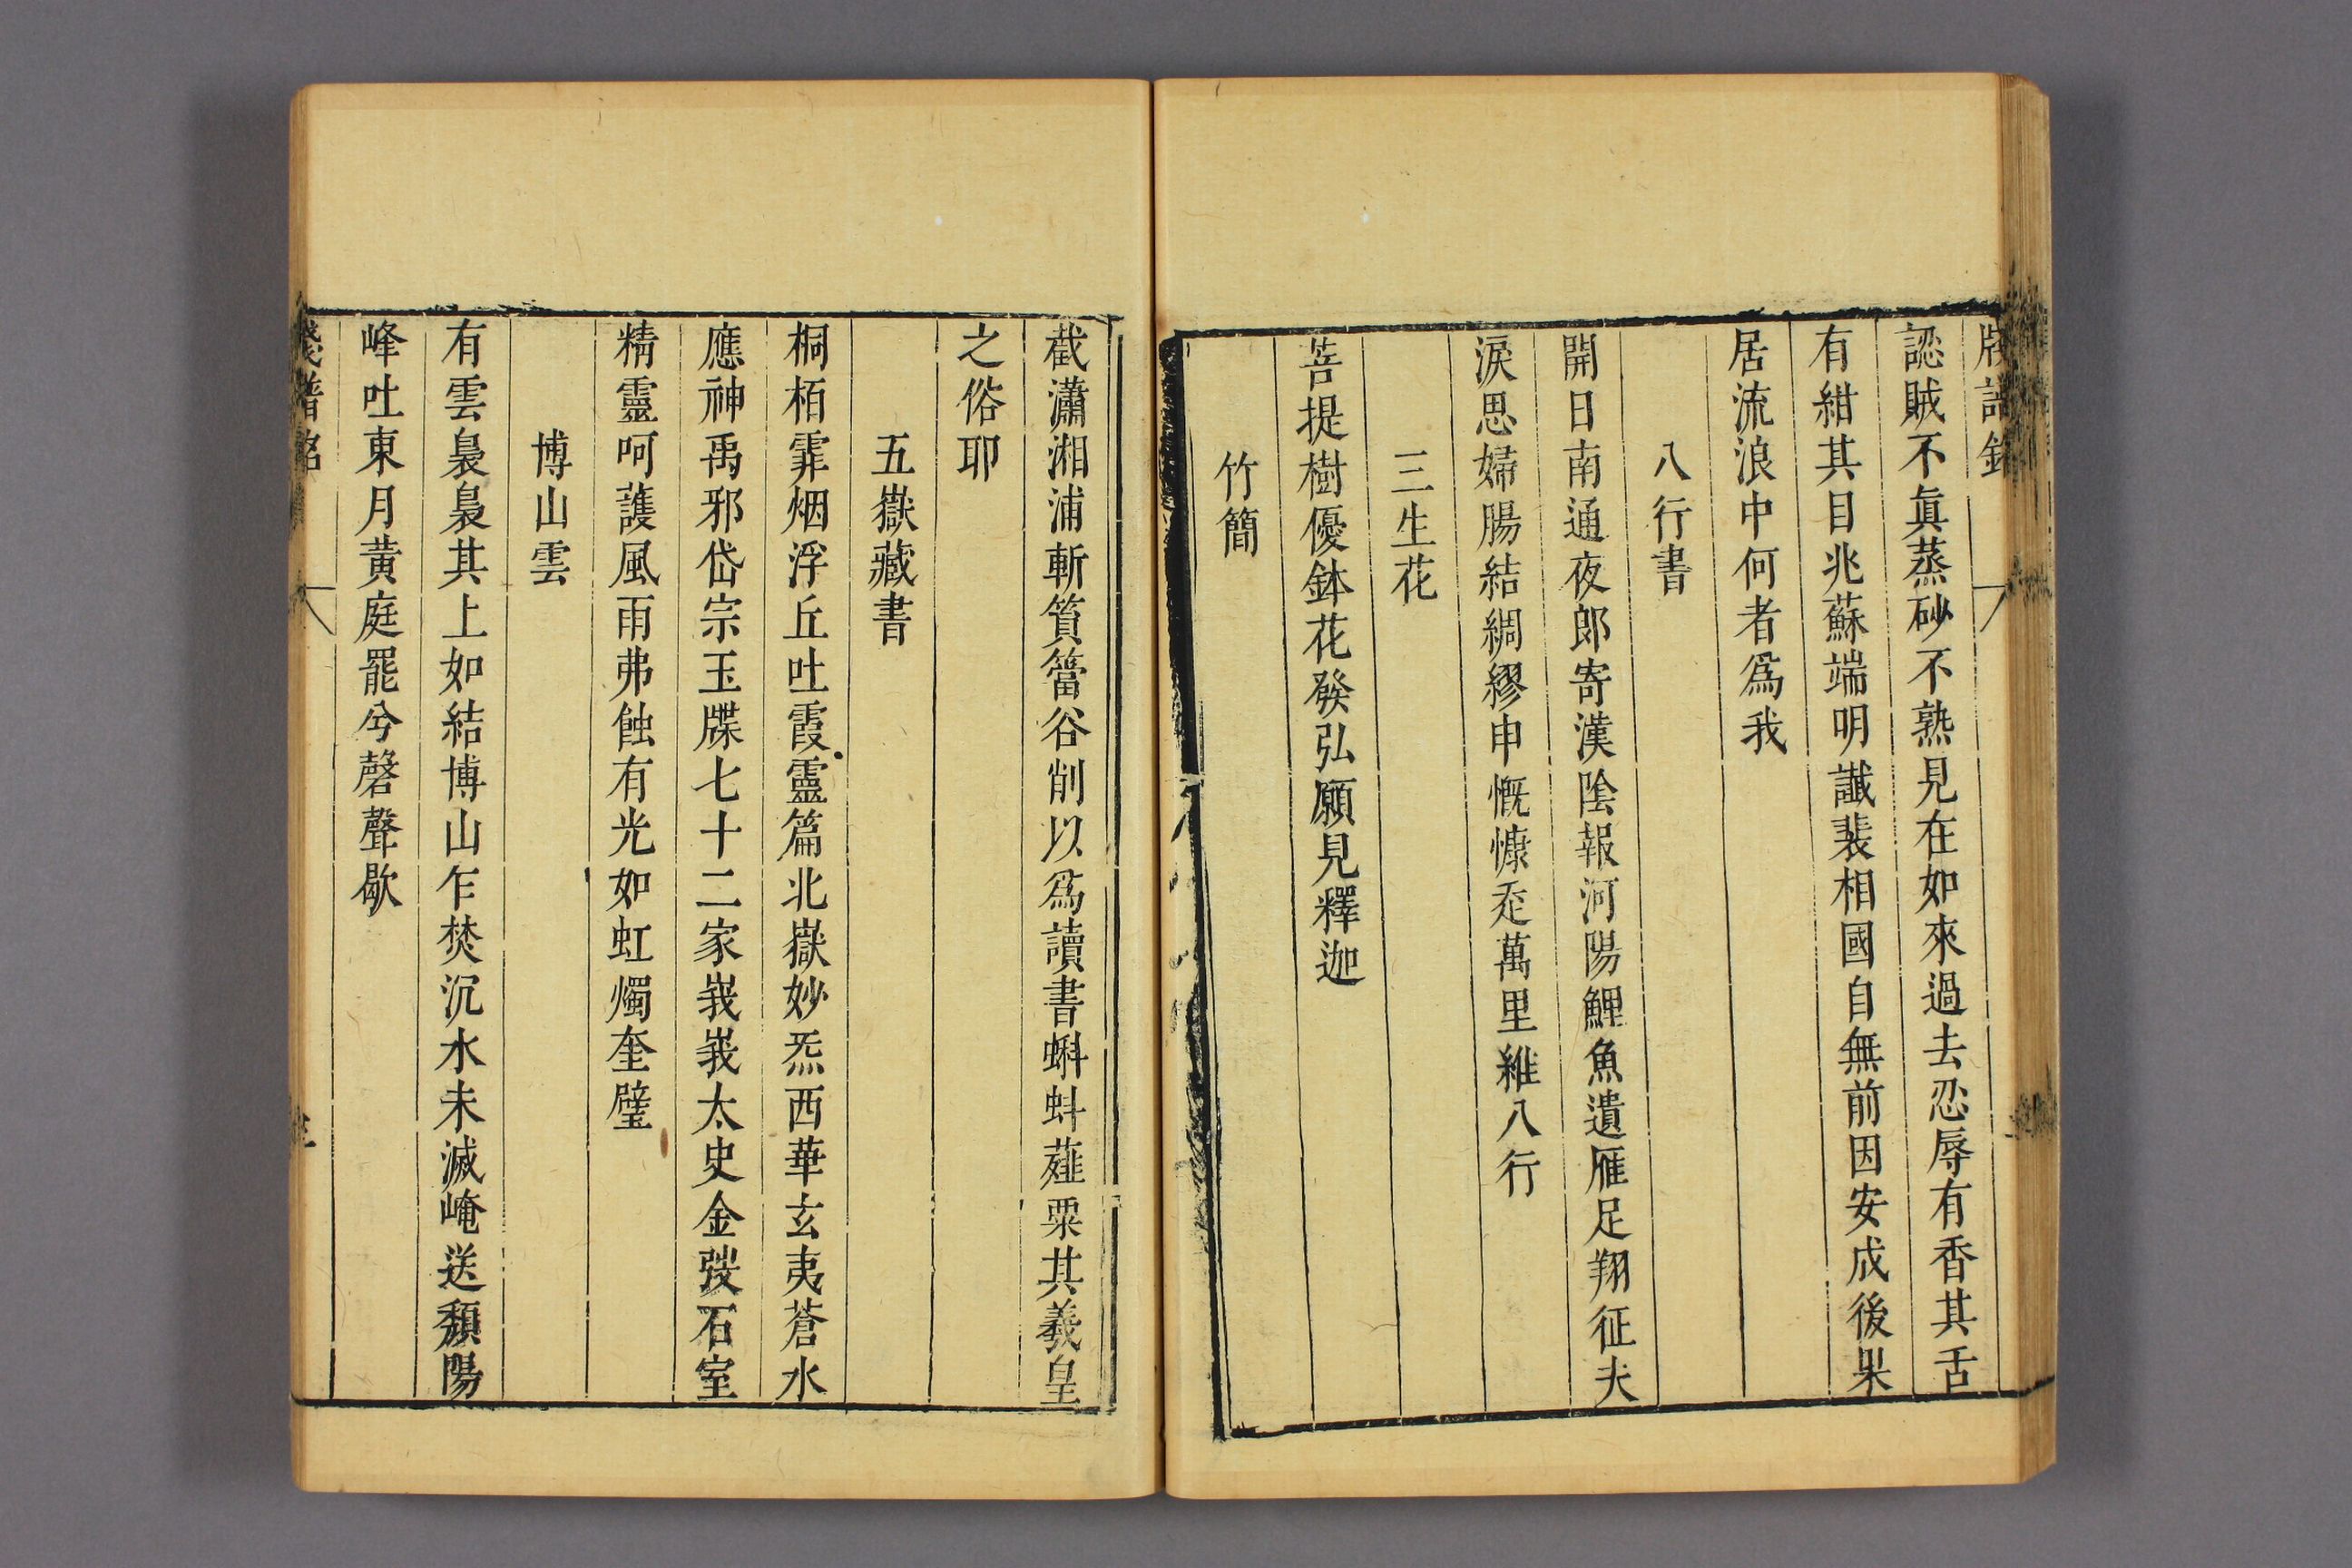 認賊不眞蒸砂不熟見在如來過去忍辱有香其舌
有紺其目兆蘇端明讖裴相國自無前因安成後果
居流浪中何者爲我
八行書
開日南通夜郎寄漢陰報河陽鯉魚遺雁足翔征夫
淚思婦腸結綢繆申慨慷𠀾萬里維八行
三生花
菩提樹優鉢花發弘願見釋迦
竹簡
截瀟湘浦斬篔簹谷削以爲讀書蝌蚪薤粟其羲皇
之俗耶
五嶽藏書
桐栢霏烟浮丘吐霞靈篇北嶽妙炁西華玄夷蒼水
應神禹邪岱宗玉牒七十二家峩峩太史金弢石室
精靈呵護風雨弗蝕有光如虹燭奎璧
博山雲
有雲裊裊其上如結博山乍焚沉水未滅崦送頹陽
峰吐東月黃庭罷兮磬聲歇
箋譜銘